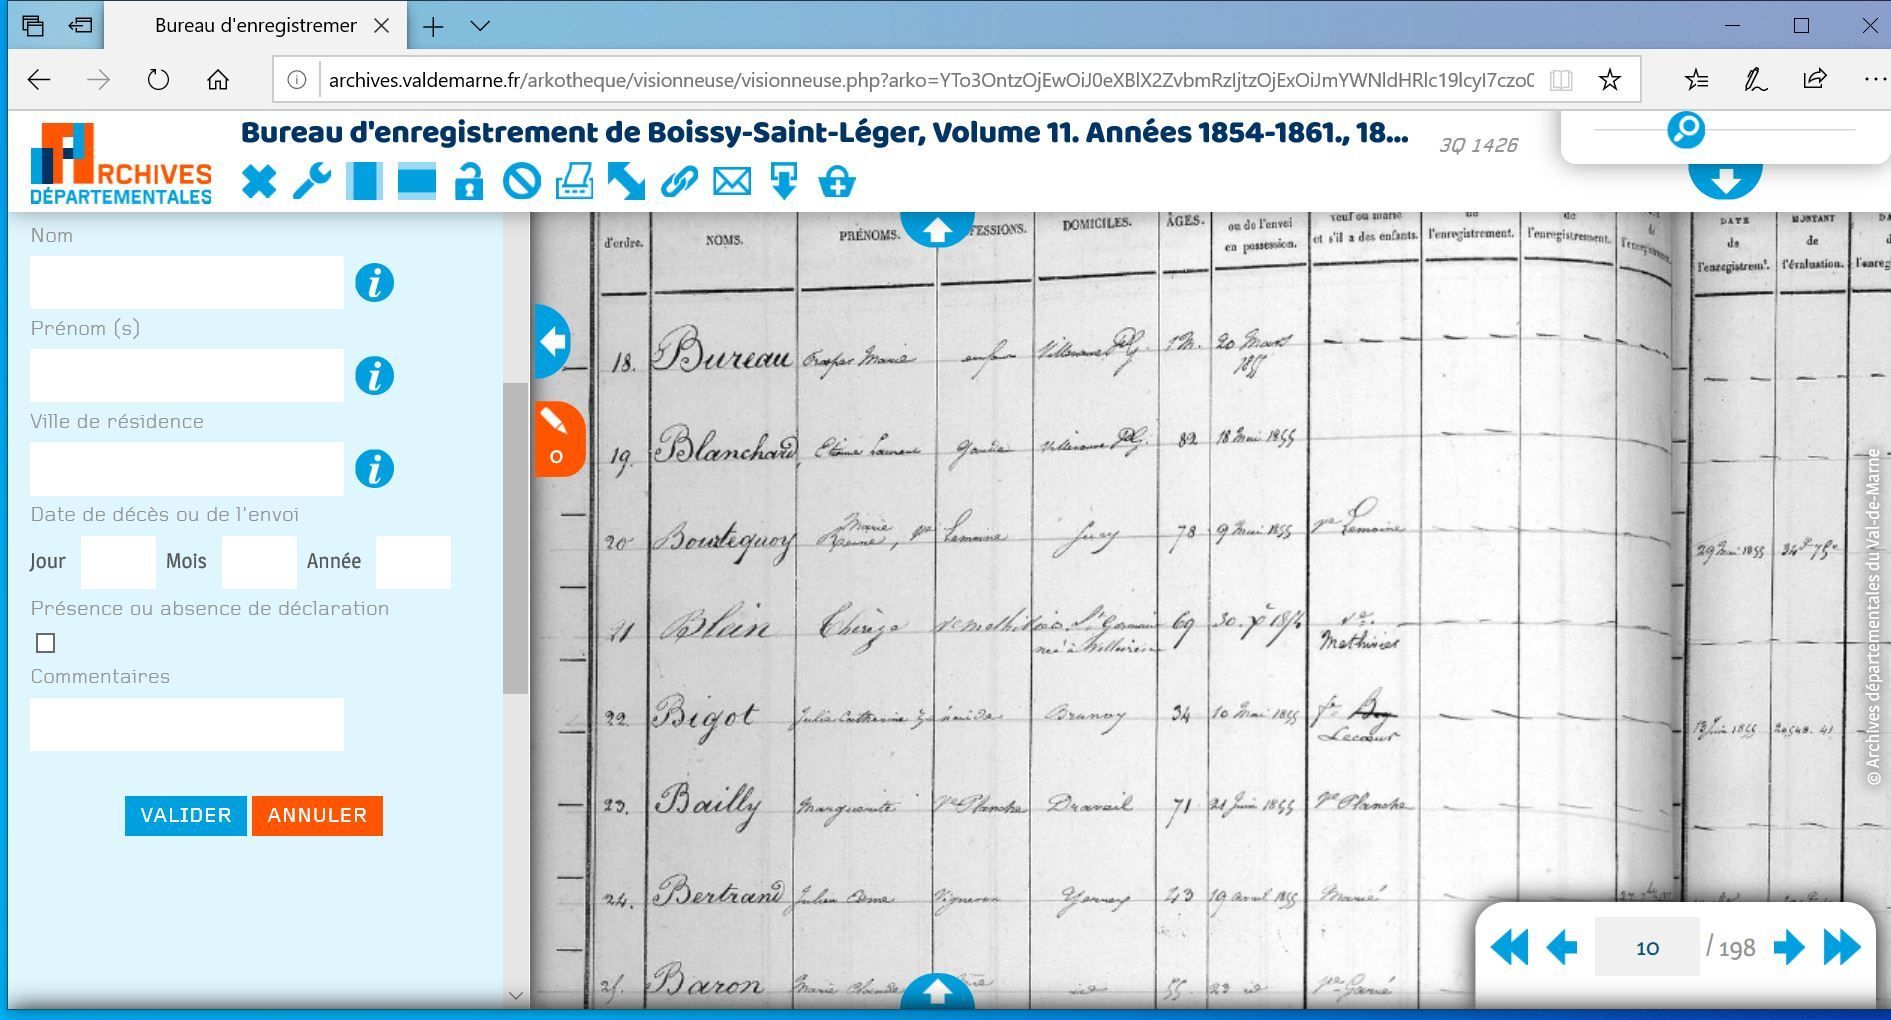 Bureau d'enregistremer
archives.valdemarne.fr/arkotheque/visionneuse/visionneuse.php?arko=YTo3OntzOjEwOiJ0eXBlX2ZvbmRzIjtzOjExOiJmYWNldHRlc19lcyI7czo0
ARCHIVES
DÉPARTEMENTALES
Bureau d'enregistrement de Boissy-Saint-Léger, Volume 11. Années 1854-1861., 18...
3Q 1426
Nom
Prénom (s)
Ville de résidence
Date de décès ou de l'envoi
Jour Mois Année
Présence ou absence de déclaration
Commentaires
VALIDER ANNULER
0
d'ordre. NOMS. PRÉNOMS. FESSIONS. DOMICILES. ÂGES. ou de l'envoi en possession. veuf ou marié et s'il a des enfants. de l'enregistrement. de l'enregistrement. de DATE de l'enregistrem.t MONTANT de l'évaluation.
18. Bureau Prosper Marie enfant 20 Mars 1855
19. Blanchard Etienne Laurent 82 18 Mai 1855
20 Bourtequoy Marie Reine, ve Lemoine 78 9 Mai 1855 ve Lemoine 29 Mai 1855
21 Blain Thérèze 69 30 ve Methivier
22. Bigot Julie Catherine Zénaïde Brunoy 34 10 Mai 1855 fe Lecœur 13 Juin 1855 20,548. 41
23. Bailly Marguerite Ve Planche Draveil 71 21 Juin 1855 Ve Planche
24. Bertrand Julien Côme Vigneron Yerres 43 19 avril 1855 Marié
25. Baron Marie Claude id 55 23 id
© Archives départementales du Val-de-Marne
10 / 198